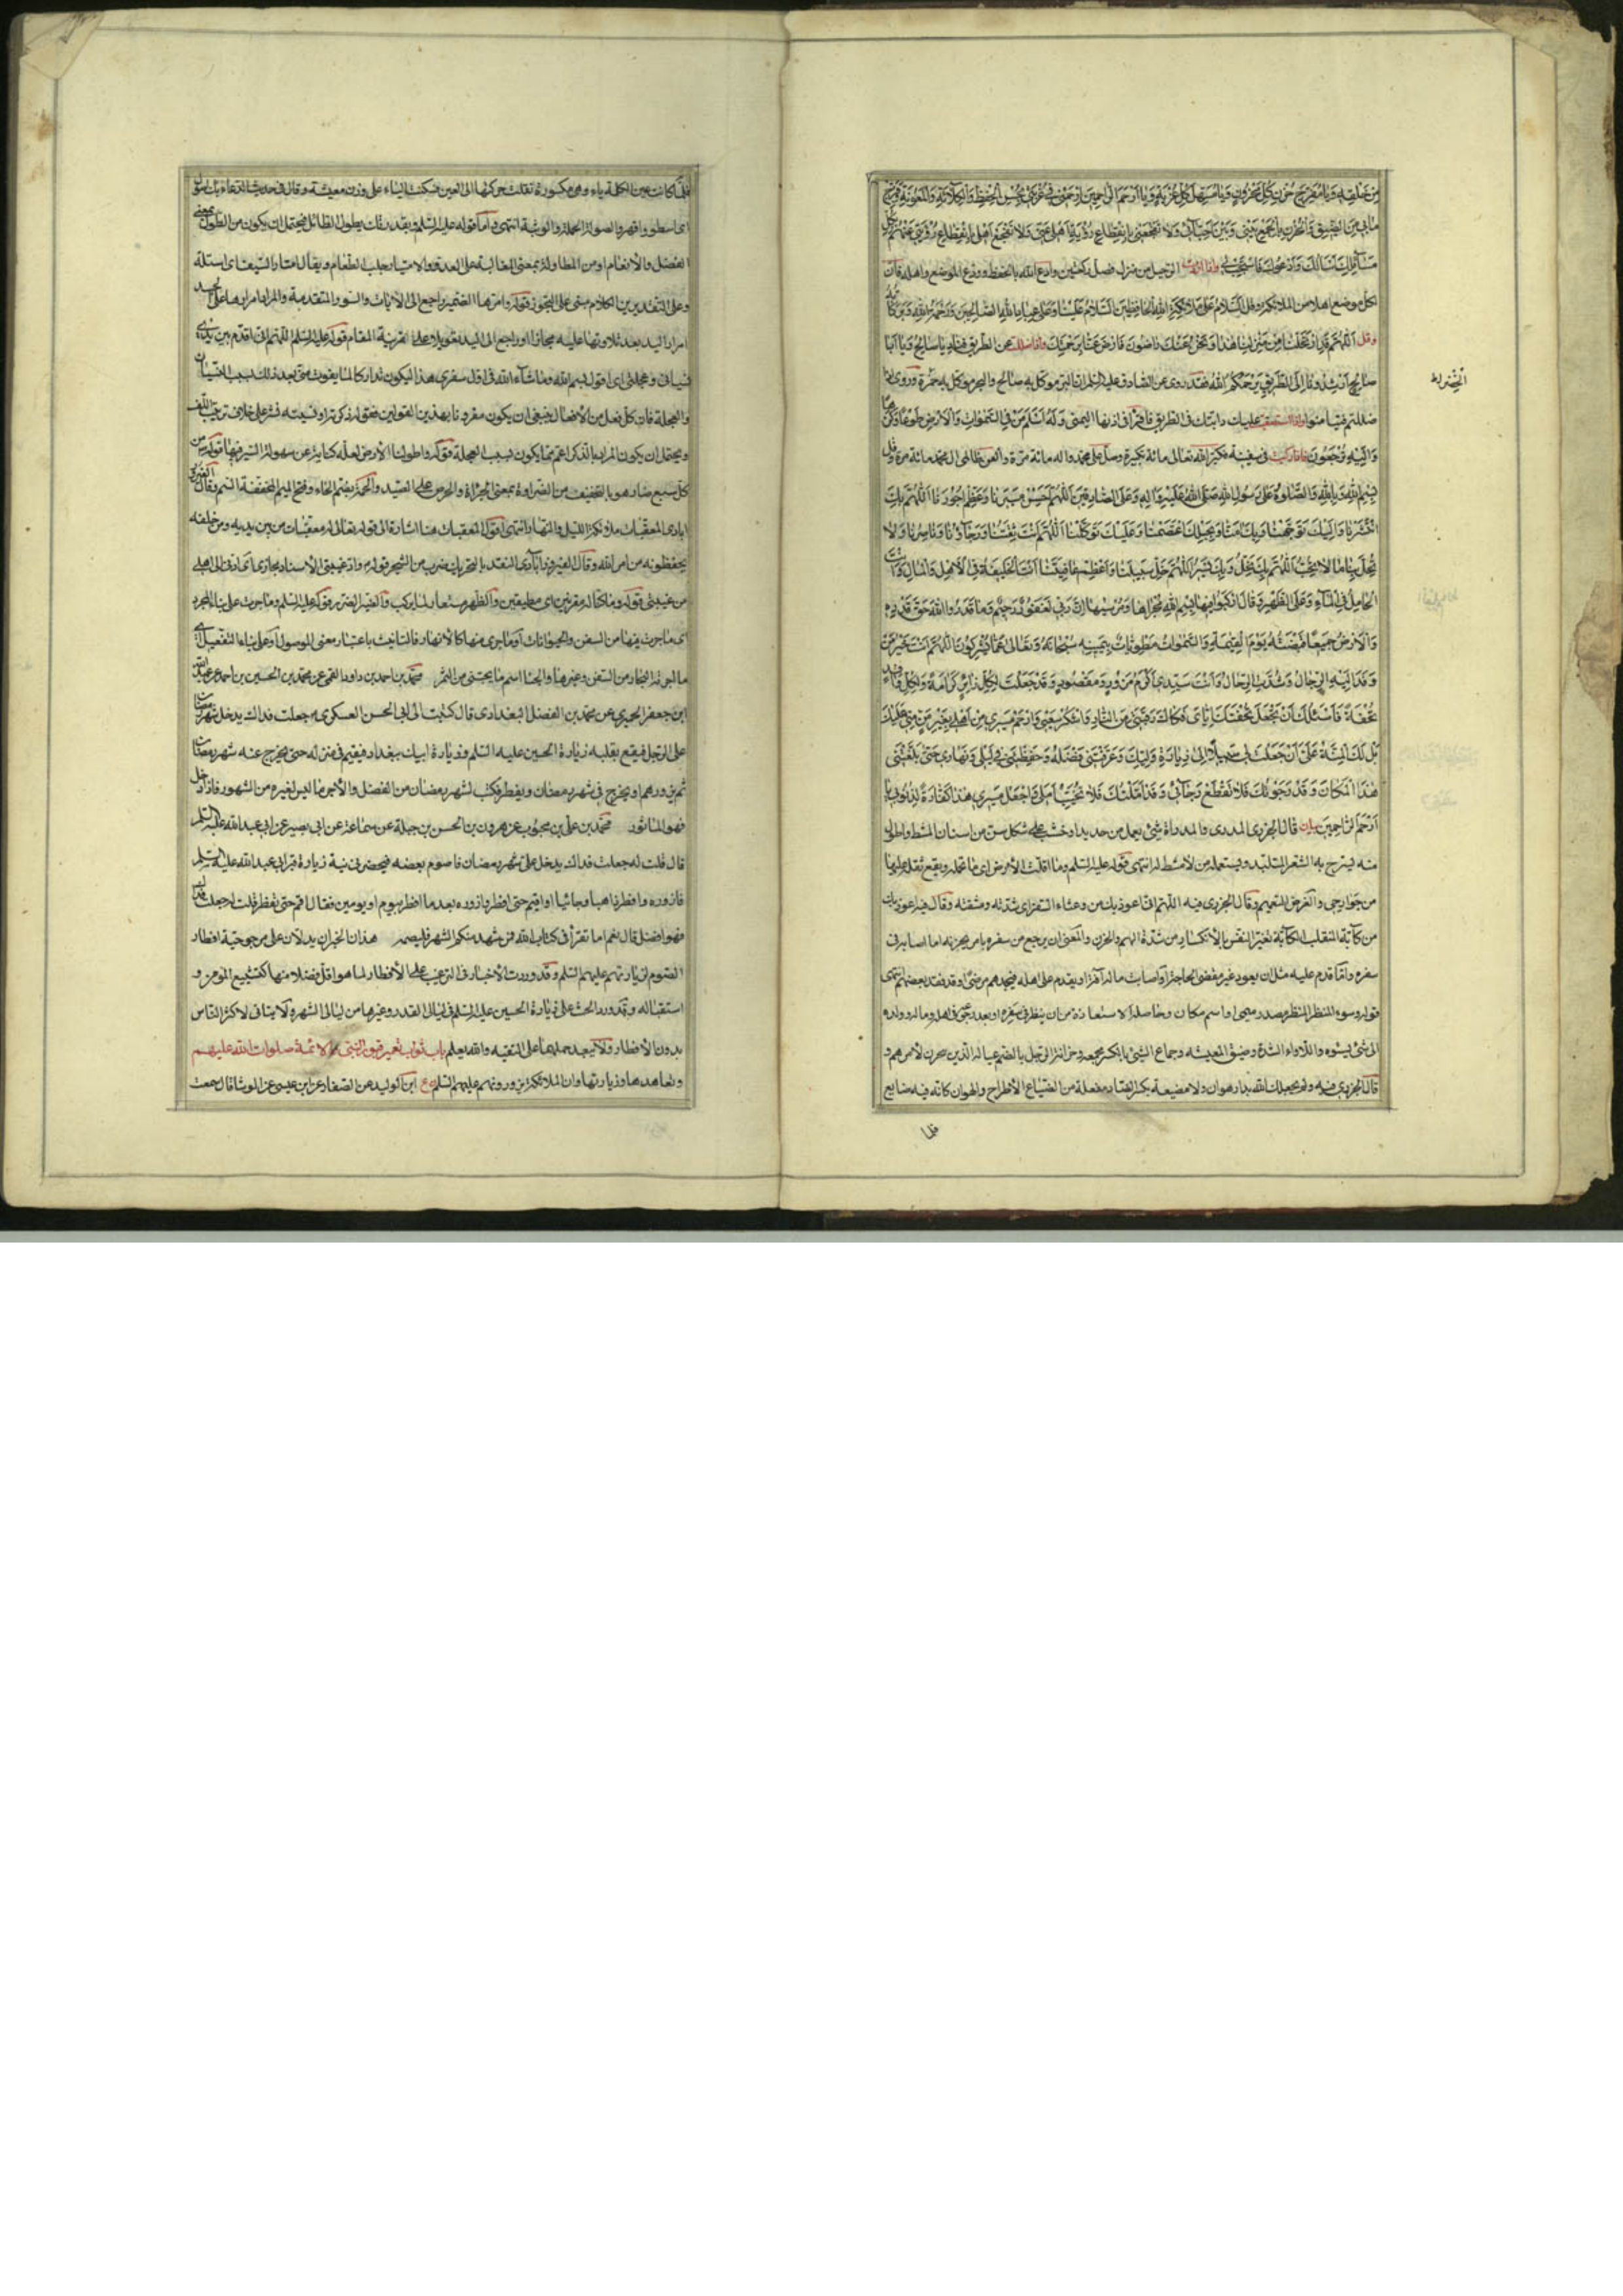 من خلقه ويا مفرج حزن كل محزون ويا مسهل كل غربة ويا ارحم الراحمين ارحمني في غربتي بحسن الحفظ والكلاءة والمعونة وفرج
ما بي من الضيق والحزن بالجمع بيني وبين احبائي ولا تفجعني بانقطاع رؤية اهلي عني ولا تفجع اهلي بانقطاع رؤيتي عنهم بكل
مسائلك اسالك وادعوك فاستجب لي واذا اراد الرحيل من منزل فصل ركعتين وادع الله بالحفظ وودع الموضع واهله فان
لكل موضع اهلا من الملائكة وقل السلام على ملائكة الله الحافظين السلام علينا وعلى عباد الله الصالحين ورحمة الله وبركاته
صالح ارشدونا الى الطريق يرحمكم الله فقد روى عن الصادق عليه السلم ان البر موكل به صالح والبحر موكل به حمزة
عليك دابتك في الطريق فاقرأ في اذنها اليمنى وله اسلم من في السموات والارض طوعا وكرها
واليه ترجعون فاذا ركبت في سفينة فكبر الله تعالى مائة تكبيرة وصل على محمد واله مائة مرة والعن ظالمي ال محمد مائة مرة وقل
بسم الله وبالله والصلوة على رسول الله صلى الله عليه واله وعلى الصادقين اللهم احسن مسيرنا وعظم اجورنا اللهم بك
انتشرنا واليك توجهنا وبك امنا وبحبلك اعتصمنا وعليك توكلنا اللهم انت ثقتنا ورجاؤنا وناصرنا ولا
تحل بنا ما لا نحب اللهم بك نحل وبك نسير اللهم خل سبيلنا واعظم عافيتنا انت الخليفة في الاهل والمال وانت
الحامل في الماء وعلى الظهر وقال اركبوا فيها بسم الله مجراها ومرسيها ان ربي لغفور رحيم وما قدروا الله حق قدره
والارض جميعا قبضته يوم القيمة والسموات مطويات بيمينه سبحانه وتعالى عما يشركون اللهم انت خير من
وفد اليه الرجال وشدت اليه الرحال وانت سيدي اكرم مزور ومقصود وقد جعلت لكل زائر كرامة ولكل وافد
تحفة فاسئلك ان تجعل تحفتك اياي فكاك رقبتي من النار واشكر سعيي وارحم مسيري من اهلي بغير من مني عليك
بل لك المنة علي ان جعلت لي سبيلا الى زيارة وليك وعرفتني فضله وحفظتني في ليلي ونهاري حتى بلغتني
هذا المكان وقد رجوتك فلا تقطع رجائي وقد املتك فلا تخيب املي واجعل مسيري هذا كفارة لذنوبي يا
ارحم الراحمين بيان قال الجزري المدرى والمدراة شيء يعمل من حديد او خشب على شكل سن من اسنان المشط واطول
منه ليسرح به الشعر المتلبد ويستعمله من لا مشط له انتهى قوله عليه السلم وما اقلت الارض اي ما تحمله ويقع ثقله عليها
وقال الجزري فيه اللهم انا نعوذ بك من وعثاء السفر اي شدته ومشقته وقال فيه اعوذ بك
من كابة المنقلب الكابة تغير النفس بالانكسار من شدة الهم والحزن والمعنى ان يرجع من سفره بامر يحزنه اما اصابه في
سفره واما قدم عليه مثل ان يعود غير مقضى الحاجة او اصابت ماله آفة او يقدم على اهله فيجدهم مرضى او قد فقد بعضهم انتهى
قوله وسوء المنظر المنظر مصدر ميمي او اسم مكان وحاصله الاستعاذة من ان ينظر في سفره او بعد رجوعه في اهله وماله وولده
الى شيء يسوءه واللاواء الشدة وضيق المعيشه وجماع الشيء بالكسر مجمعه وحزانة الرجل بالضم عياله الذين يحزن لامرهم و
قال الجزري فيه ولم يجعلك الله بدار هوان ولا مضيعة بكسر الضاد مفعلة من الضياع الاطراح والهوان كانه فيه ضايع
فلما
فلما كانت عين الكلمة ياء وهي مكسورة نقلت حركتها الى العين فسكنت الياء على وزن معيشة وقال في حديث الدعاء بك اصول
اي اسطو واقهر والصولة الحملة والوثبة انتهى واما قوله عليه السلم وبقدرتك يطول الطائل فيحتمل ان يكون من الطول بمعنى
الفضل والانعام او من المطاولة بمعنى المغالبة على العدو والامتيار جلب الطعام ويقال امتار السيف اي استله
وعلى التقديرين الكلام مبني على التجوز قوله وامرتها الضمير راجع الى الايات والسور المتقدمة والمراد امرارها على الجسد
امرار اليد بعد تلاوتها عليه مجازا او راجع الى اليد بقرينة المقام قوله عليه السلم اللهم اني اقدم بين يدي
نسياني وعجلتي اي اقول بسم الله وما شاء الله في اول سفري هذا ليكون تداركا لما يفوت مني بعد ذلك بسبب النسيان
والعجلة فان كل فعل من الافعال ينبغي ان يكون مقرونا بهذين القولين
ويحتمل ان يكون المراد بالذكر اعم مما يكون بسبب العجلة قوله واطو لنا الارض لعله كناية عن سهولة السير فيها قوله من
كل سبع ضار هو بالتخفيف من الضراوة بمعنى الجرأة والحرص على الصيد والحمة بضم الحاء وفتح الميم المخففة السم وقال الفيروز
ابادي المعقبات ملائكة الليل والنهار انتهى اقول المعقبات هنا اشارة الى قوله تعالى له معقبات من بين يديه ومن خلفه
يحفظونه من امر الله
من غيبتي قوله وما كنا له مقرنين اي مطيقين والظهر يستعار لما يركب والضير الضرر وقوله عليه السلم وما جرت على بناء المجرد
اي ما جرت فيها من السفن والحيوانات او ما جرى منها كالانهار فالتانيث باعتبار معنى الموصول او على بناء التفعيل اي
من السفن وغيرها والجنا اسم ما يجتنى من الثمر محمد بن احمد بن داود القمي عن محمد بن الحسين بن احمد عن عبد الله
ابن جعفر الحميري عن محمد بن الفضل البغدادي قال كتبت الى ابي الحسن العسكري ع جعلت فداك يدخل شهر رمضان
على الرجل فيقع بقلبه زيارة الحسين عليه السلم وزيارة ابيك ببغداد فيقيم في منزله حتى يخرج عنه شهر رمضان
ثم يزورهم او يخرج في شهر رمضان ويفطر فكتب لشهر رمضان من الفضل والاجر ما ليس لغيره من الشهور فاذا دخل
فهو الماثور محمد بن علي بن محبوب عن هرون بن الحسن بن جبلة عن سماعة عن ابي بصير عن ابي عبد الله عليه السلم
قال قلت له جعلت فداك يدخل علي شهر رمضان فاصوم بعضه فيحضرني نية زيارة قبر ابي عبد الله عليه السلم
فازوره وافطر ذاهبا وجائيا او اقيم حتى افطر وازوره بعد ما افطر بيوم او يومين فقال اقم حتى تفطر قلت له جعلت فداك
فهو افضل قال نعم اما تقرأ في كتاب الله فمن شهد منكم الشهر فليصمه هذان الخبران يدلان على مرجوحية افطار
الصوم لزيارتهم عليهم السلم وقد وردت الاخبار في الترغيب على الافطار لما هو اقل فضلا منها كتشييع المؤمن و
استقباله وقد ورد الحث على زيارة الحسين عليه السلم في ليالي القدر وغيرها من ليالي الشهر ولا يتاتى لاكثر الناس
بدون الافطار ولا يبعد حملهما على التقيه والله يعلم باب ثواب تعمير قبور النبي والائمة صلوات الله عليهم
وتعاهدها وزيارتها وان الملائكة يزورونهم عليهم السلم ع ابن الوليد عن الصفار عن ابن عيسى عن الوشا قال سمعت